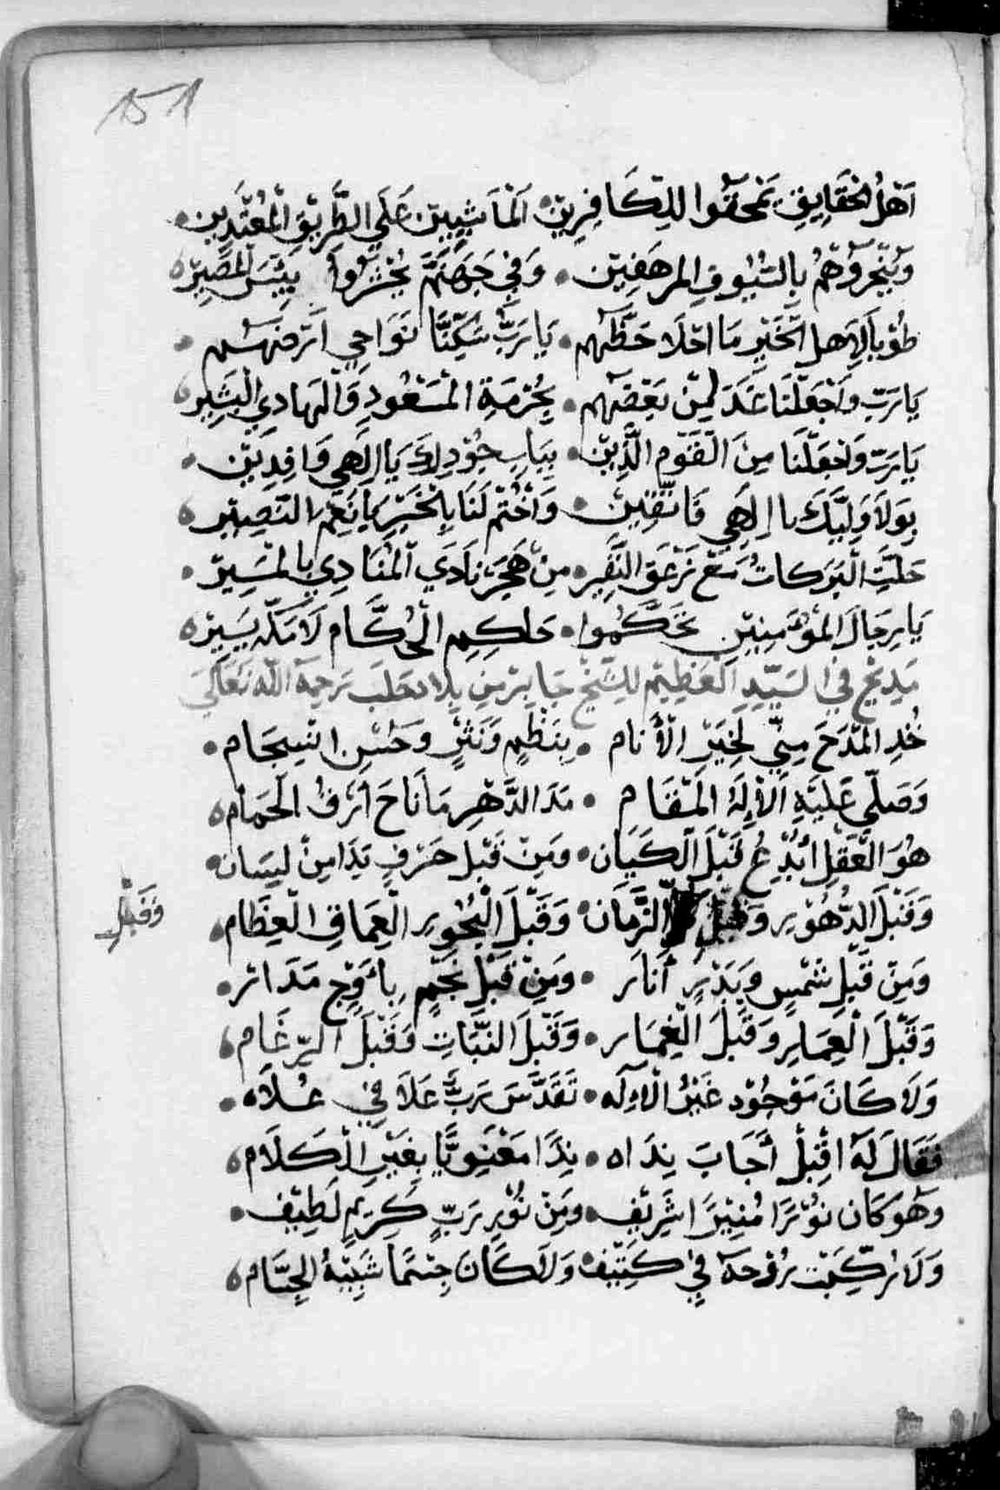 151
اَهْلُ الحَقَايِقِ يَمْحَقُوا لِلكَافِرِيْن • اَلْمَاشِيِيْنَ عَلَى الطَّرِيْقِ الْمُعْتَدِين •
وَيُنْحَرُوهُمْ بِالسُّيُوفِ المرهفِيْن • وَفِي جَهَنَّمْ يُحْشَرُوا بِئِسَ المَصِيْر ه
طُوْبَا لِاَهلِ الخَيْرِ مَا احْلَا حَظَّهُم • يَا رَبّ سَكِّنَّا نَوَاحِي اَرْضِهِم •
يَا رَبّ وَاجْعَلْنَا غَدَ لمِنْ بَعْضِهِم • بِحُرْمَةِ الْمَسْعُودِ وَالْهَادِي الْبَشِيْر ه
يَا رَبّ وَاجْعَلْنَا مِنَ الْقَوْمِ الَّذِيْن • بِبَابِ جُوْدِكَ يَا اِلَهِي وَافِدِيْن •
بِوَلَا وَلِيَّكَ يا اِلَهِي فَائِقِيْن • وَاخْتُمْ لَنَا بِالْخَيْرِ يَا نِعْمَ النَّصِيْر ه
حَلَّتِ الْبَرَكَاتُ مَعْ زَعَقِ النَّفِير • مِنْ هَجَرْ نَادَى الْمُنَادِي بِالْمَسِيرْ •
يَا رِجَالَ المُؤْمِنِيْن تَحَكَّمُوا • حَاكِمِ الْحُكَّام لَامَكَّه يَسِيْر ه
مَدِيْح فِي السَيِّدِ الْعَظِيْم لِلشَّيْخ جَابِر مِن بِلَادِ حَلَب رَحِمَهُ اللهُ تَعَالَى
خُذِ المَدْحَ مِنِّي لِخَيْرِ الْأَنام • بِنَظْمٍ وَنَثْرٍ وَحُسْنِ انْسِجَام •
وَصَلِّي عَلَيْهِ الْاِلَهْ المَقَام • مَدَ الدَّهْرِ مَا نَاحَ اُرْقُ الْحَمَام ه
هُوَ الْعَقْلِ اُبْدِعُ قَبْلَ الْكَيَان • وَمِنْ قَبْلِ حَرْفٍ بَدَا مِنْ لِسَان •
وَقَبْلَ الدُّهُوْرِ وَقَبْلِ الزَّمَان • وَقَبْلَ الْبُحُورِ الْعِمَاقِ الْعِظَام ه
وَمِنْ قَبْلِ شَمْسٍ وَبَدْرٍ اَنَار • وَمِنْ قَبْلِ نَجْمٍ بِأَوْجٍ مَدَار •
وَقَبْلَ الْعِمَارِ وَقَبْلَ الْغِمَار • وَقَبْلَ النَّبَاتِ وَقَبْلَ الرّغَام ه
وَلَا كَانَ مَوْجُوْد غَيْرُ الْاِلَه • تَقَدَّسَ رَبٌّ عَلَا فِي عُلَاه •
فَقَالَ لَهُ اقْبِلْ أَجَابَ نِدَاه • نِدَا مَعْنَوِيًّا بِغَيْرِ الْكَلَام ه
وَهْوَ كَان نُوْرًا مُنِيْرًا شَرِيْف • وَمِنْ نُوْرِ رَبٍّ كَرِيمٍ لَطِيْف •
وَلَا رُكِّبَتْ رُوْحَهُ فِي كَثِيْف • وَلَا كَانَ جِسْمًا شَبِيْهُ الجِسَام ه
وَقَبْلِ